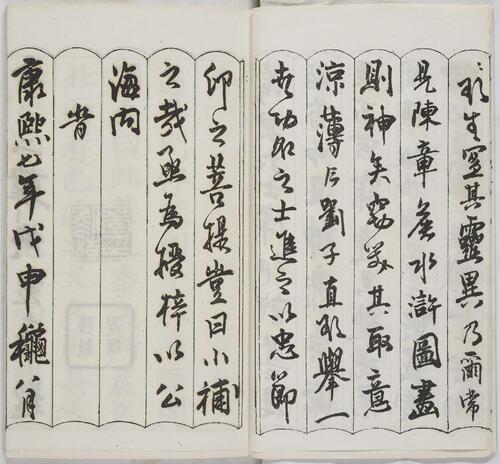 生冥其靈異乃爾常
見陳章侯水滸圖畫
則神矣竊為其取意
涼薄以劉子直欲舉一
世功名之士進之以忠節
仰之菩提豈曰小補
之哉亟為授梓以公
海內
時
康熙七年戊申穐八月